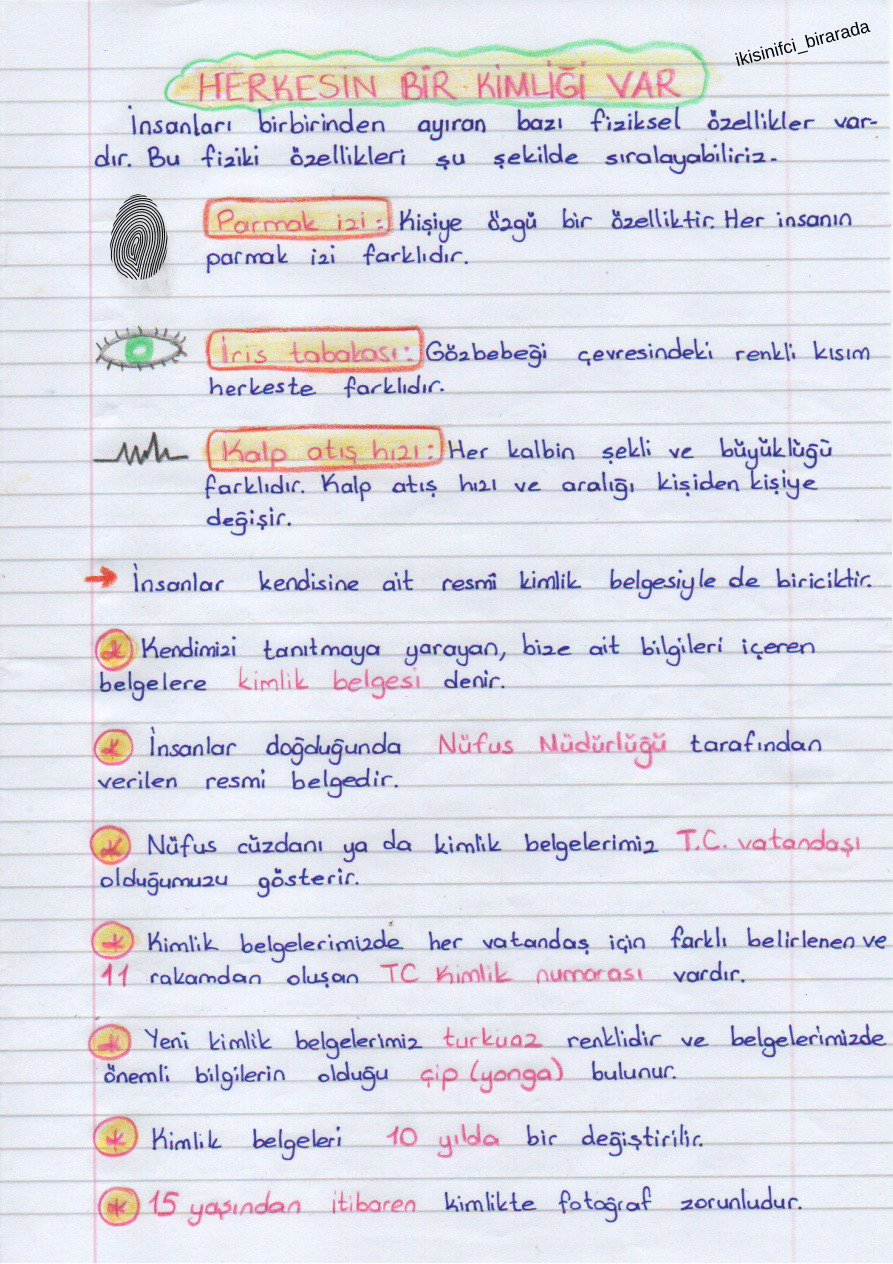 ikisinifci_birarada
HERKESİN BİR KİMLİĞİ VAR
İnsanları birbirinden ayıran bazı fiziksel özellikler var-
dır. Bu fiziki özellikleri şu şekilde sıralayabiliriz.
Parmak izi: Kişiye özgü bir özelliktir. Her insanın
parmak izi farklıdır.
İris tabakası: Gözbebeği çevresindeki renkli kısım
herkeste farklıdır.
Kalp atış hızı: Her kalbin şekli ve büyüklüğü
farklıdır. Kalp atış hızı ve aralığı kişiden kişiye
değişir.
→ İnsanlar kendisine ait resmî kimlik belgesiyle de biriciktir.
* Kendimizi tanıtmaya yarayan, bize ait bilgileri içeren
belgelere kimlik belgesi denir.
* İnsanlar doğduğunda Nüfus Müdürlüğü tarafından
verilen resmi belgedir.
* Nüfus cüzdanı ya da kimlik belgelerimiz T.C. vatandaşı
olduğumuzu gösterir.
* Kimlik belgelerimizde her vatandaş için farklı belirlenen ve
11 rakamdan oluşan TC Kimlik numarası vardır.
* Yeni kimlik belgelerimiz turkuaz renklidir ve belgelerimizde
önemli bilgilerin olduğu çip (yonga) bulunur.
* Kimlik belgeleri 10 yılda bir değiştirilir.
* 15 yaşından itibaren kimlikte fotoğraf zorunludur.